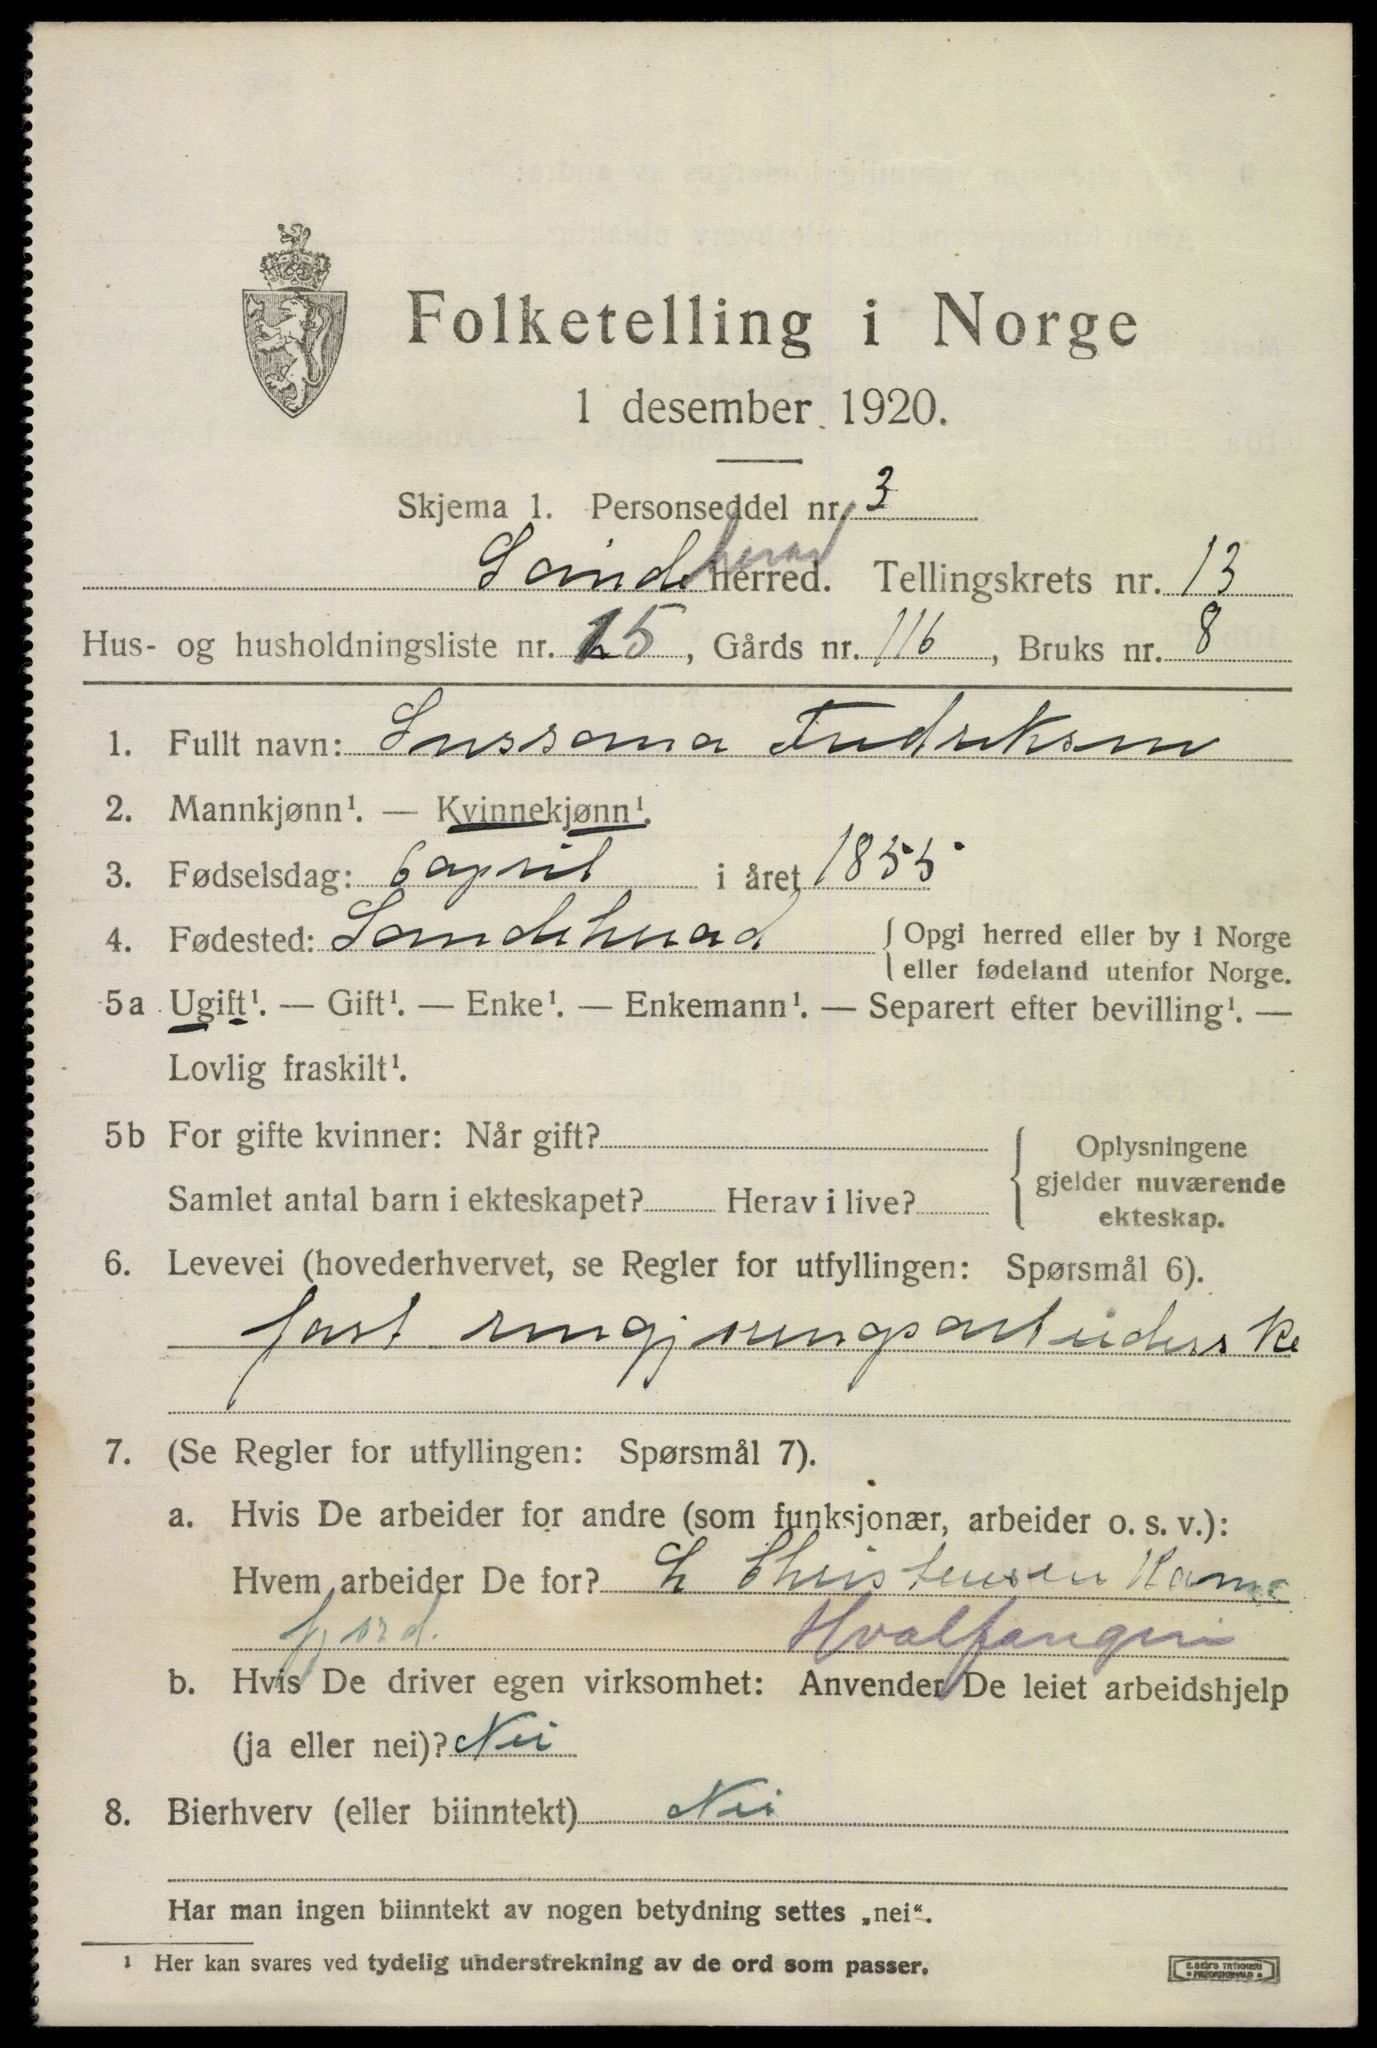 Folketelling i Norge
1 desember 1920.
Skjema 1. Personseddel nr. 3
Sandeherad herred. Tellingskrets nr. 13
Hus- og husholdningsliste nr. 15, Gårds nr. 116, Bruks nr. 8
1. Fullt navn: Sussana Fredriksen
2. Mannkjønn¹. — Kvinnekjønn¹.
3. Fødselsdag: 6 april i året 1855
4. Fødested: Sandeherad { Opgi herred eller by i Norge
eller fødeland utenfor Norge.
5a Ugift¹. — Gift¹. — Enke¹. — Enkemann¹. — Separert efter bevilling¹. —
Lovlig fraskilt¹.
5b For gifte kvinner: Når gift?
Samlet antal barn i ekteskapet? Herav i live?
{ Oplysningene
gjelder nuværende
ekteskap.
6. Levevei (hovederhvervet, se Regler for utfyllingen: Spørsmål 6).
fast rengjøringsarbeiderske
7. (Se Regler for utfyllingen: Spørsmål 7).
a. Hvis De arbeider for andre (som funksjonær, arbeider o. s. v.):
Hvem arbeider De for? L Christensen
fjord. Hvalfangeri
b. Hvis De driver egen virksomhet: Anvender De leiet arbeidshjelp
(ja eller nei)? Nei
8. Bierhverv (eller biinntekt) Nei
Har man ingen biinntekt av nogen betydning settes „nei“.
¹ Her kan svares ved tydelig understrekning av de ord som passer.